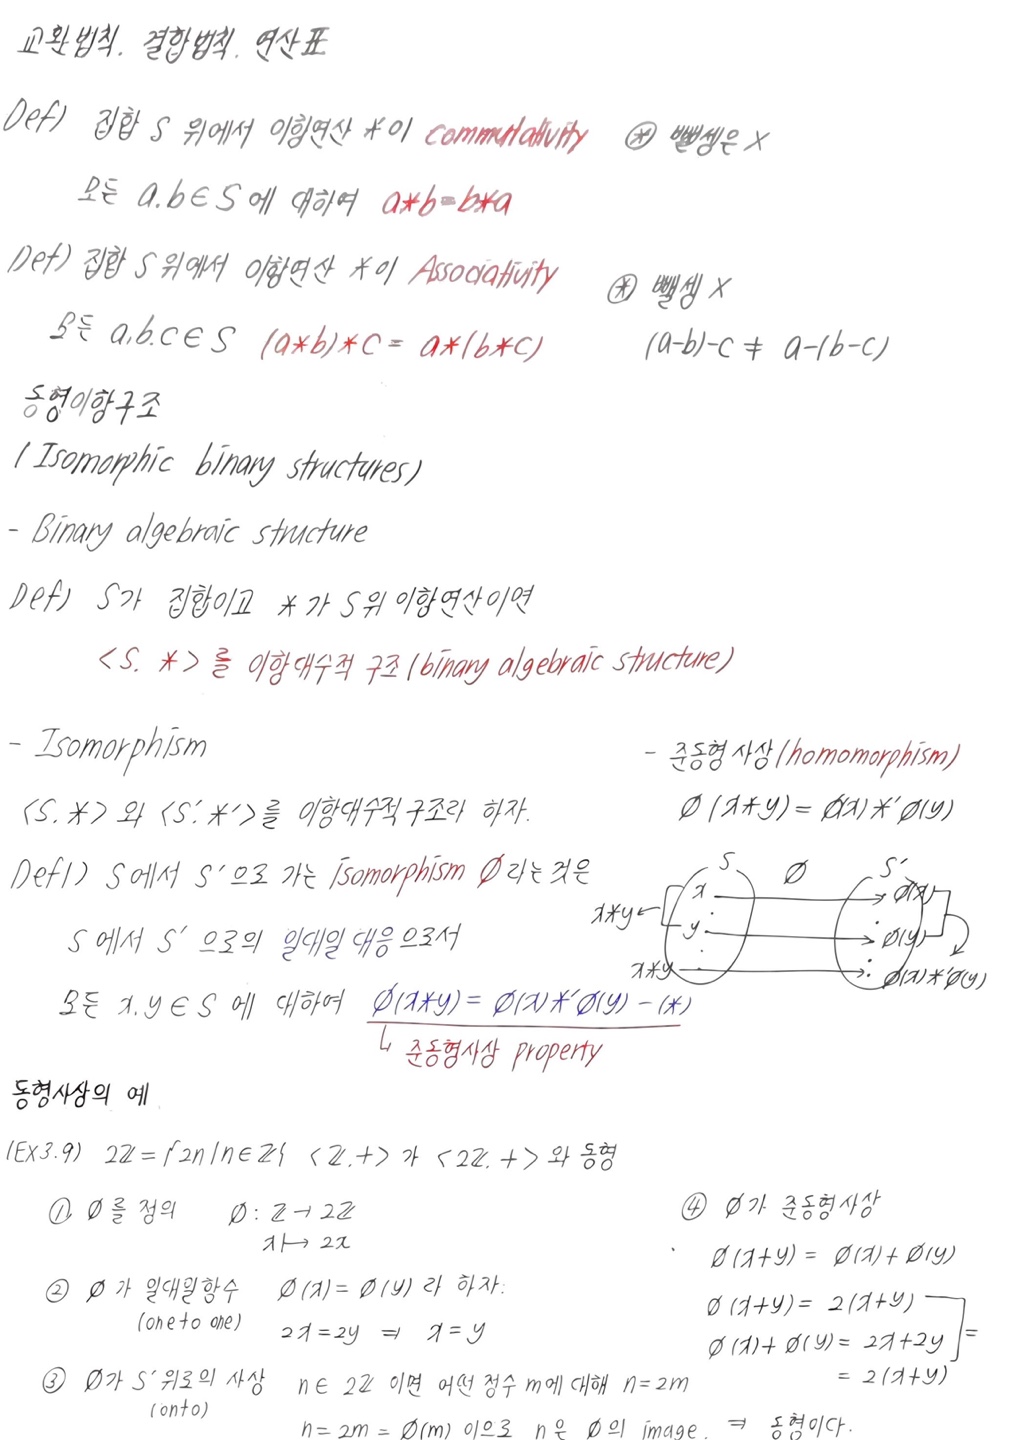 교환법칙. 결합법칙. 연산표
Def) 집합 S 위에서 이항연산 *이 commutativity ⊛ 뺄셈은 X
모든 a.b∈S에 대하여 a*b=b*a
Def) 집합 S 위에서 이항연산 *이 Associativity ⊛ 뺄셈 X
모든 a.b.c∈S (a*b)*c = a*(b*c) (a-b)-c ≠ a-(b-c)
동형이항구조
(Isomorphic binary structures)
- Binary algebraic structure
Def) S가 집합이고 *가 S위 이항연산이면
<S. *>를 이항대수적 구조(binary algebraic structure)
- Isomorphism
<S.*>와 <S'.*'>를 이항대수적구조라 하자.
Def1) S에서 S'으로 가는 isomorphism ø라는 것은
S에서 S'으로의 일대일 대응으로서
모든 x.y∈S 에 대하여 ø(x*y) = ø(x)*'ø(y) - (*)
↳ 준동형사상 property
- 준동형사상(homomorphism)
ø(x*y) = ø(x)*'ø(y)
S ø S'
x ø(x)
x*y
y ø(y)
x*y ø(x)*'ø(y)
동형사상의 예
(Ex3.9) 2ℤ = {2n|n∈ℤ} <ℤ.+>가 <2ℤ.+>와 동형
① ø를 정의 ø: ℤ→2ℤ
x↦2x
② ø가 일대일함수 ø(x) = ø(y)라 하자.
(one to one) 2x=2y ⇒ x=y
③ ø가 S'위로의 사상 n∈2ℤ 이면 어떤 정수 m에 대해 n=2m
(onto)
n=2m = ø(m) 이므로 n은 ø의 image. ⇒ 동형이다.
④ ø가 준동형사상
ø(x+y) = ø(x)+ø(y)
ø(x+y) = 2(x+y)
ø(x)+ø(y) = 2x+2y =
= 2(x+y)